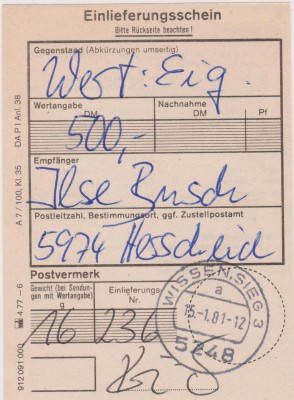 Einlieferungsschein
Bitte Rückseite beachten!
Gegenstand (Abkürzungen umseitig)
Wert: Eig.
Wertangabe DM
Nachnahme DM Pf
500,-
Empfänger
Ilse Busch
Postleitzahl, Bestimmungsort, ggf. Zustellpostamt
5974 Herscheid
Postvermerk
Gewicht (bei Sendungen mit Wertangabe) g
Einlieferungs-Nr.
16 236
WISSEN,SIEG 3
a
15-1.81-12
5248
DA P I Anl. 38
A 7/100, Kl. 35
4.77 - 6
912 091 000